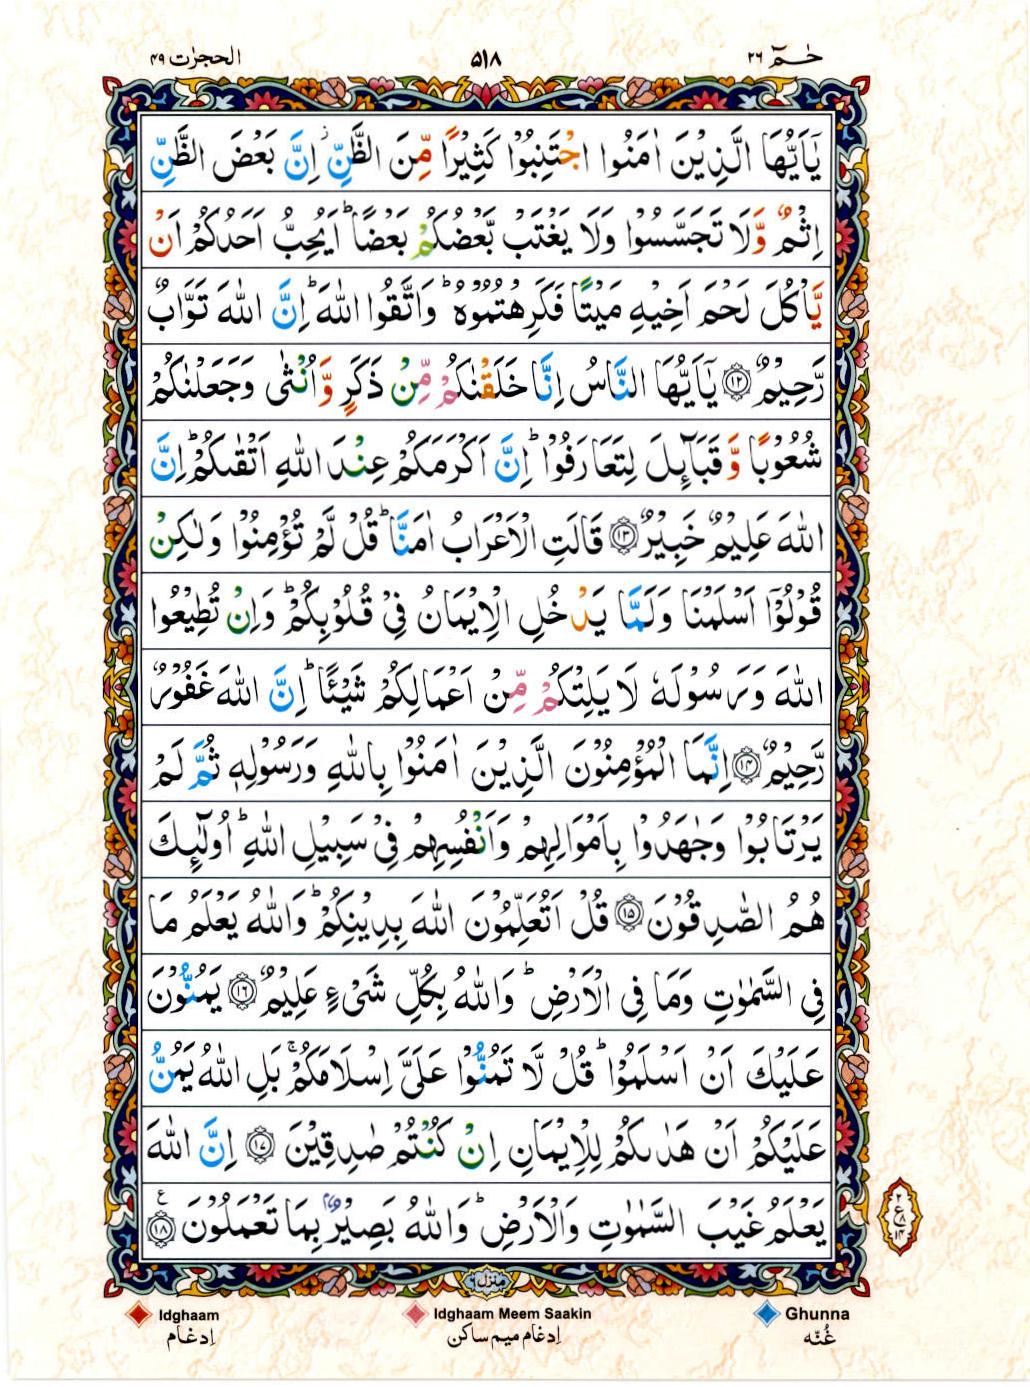 حٰمٓ ٢٦
٥١٨
الحجرٰت ٤٩
يٰٓاَيُّهَا الَّذِيْنَ اٰمَنُوا اجْتَنِبُوْا كَثِيْرًا مِّنَ الظَّنِّ ۚ اِنَّ بَعْضَ الظَّنِّ
اِثْمٌ وَّلَا تَجَسَّسُوْا وَلَا يَغْتَبْ بَّعْضُكُمْ بَعْضًا ؕ اَيُحِبُّ اَحَدُكُمْ اَنْ
يَّاْكُلَ لَحْمَ اَخِيْهِ مَيْتًا فَكَرِهْتُمُوْهُ ؕ وَاتَّقُوا اللّٰهَ ؕ اِنَّ اللّٰهَ تَوَّابٌ
رَّحِيْمٌ ۝١٢ يٰٓاَيُّهَا النَّاسُ اِنَّا خَلَقْنٰكُمْ مِّنْ ذَكَرٍ وَّاُنْثٰى وَجَعَلْنٰكُمْ
شُعُوْبًا وَّقَبَآئِلَ لِتَعَارَفُوْا ؕ اِنَّ اَكْرَمَكُمْ عِنْدَ اللّٰهِ اَتْقٰىكُمْ ؕ اِنَّ
اللّٰهَ عَلِيْمٌ خَبِيْرٌ ۝١٣ قَالَتِ الْاَعْرَابُ اٰمَنَّا ؕ قُلْ لَّمْ تُؤْمِنُوْا وَلٰكِنْ
قُوْلُوْٓا اَسْلَمْنَا وَلَمَّا يَدْخُلِ الْاِيْمَانُ فِيْ قُلُوْبِكُمْ ؕ وَاِنْ تُطِيْعُوا
اللّٰهَ وَرَسُوْلَهٗ لَا يَلِتْكُمْ مِّنْ اَعْمَالِكُمْ شَيْـًٔا ؕ اِنَّ اللّٰهَ غَفُوْرٌ
رَّحِيْمٌ ۝١٤ اِنَّمَا الْمُؤْمِنُوْنَ الَّذِيْنَ اٰمَنُوْا بِاللّٰهِ وَرَسُوْلِهٖ ثُمَّ لَمْ
يَرْتَابُوْا وَجٰهَدُوْا بِاَمْوَالِهِمْ وَاَنْفُسِهِمْ فِيْ سَبِيْلِ اللّٰهِ ؕ اُولٰٓئِكَ
هُمُ الصّٰدِقُوْنَ ۝١٥ قُلْ اَتُعَلِّمُوْنَ اللّٰهَ بِدِيْنِكُمْ ؕ وَاللّٰهُ يَعْلَمُ مَا
فِي السَّمٰوٰتِ وَمَا فِي الْاَرْضِ ؕ وَاللّٰهُ بِكُلِّ شَيْءٍ عَلِيْمٌ ۝١٦ يَمُنُّوْنَ
عَلَيْكَ اَنْ اَسْلَمُوْا ؕ قُلْ لَّا تَمُنُّوْا عَلَيَّ اِسْلَامَكُمْ ۚ بَلِ اللّٰهُ يَمُنُّ
عَلَيْكُمْ اَنْ هَدٰىكُمْ لِلْاِيْمَانِ اِنْ كُنْتُمْ صٰدِقِيْنَ ۝١٧ اِنَّ اللّٰهَ
يَعْلَمُ غَيْبَ السَّمٰوٰتِ وَالْاَرْضِ ؕ وَاللّٰهُ بَصِيْرٌۢ بِمَا تَعْمَلُوْنَ ۝١٨ ع
٢
ع ٨
١٤
منزل ٦
Ghunna
غُنّه
Idghaam Meem Saakin
اِدغام میم ساکن
Idghaam
اِدغام